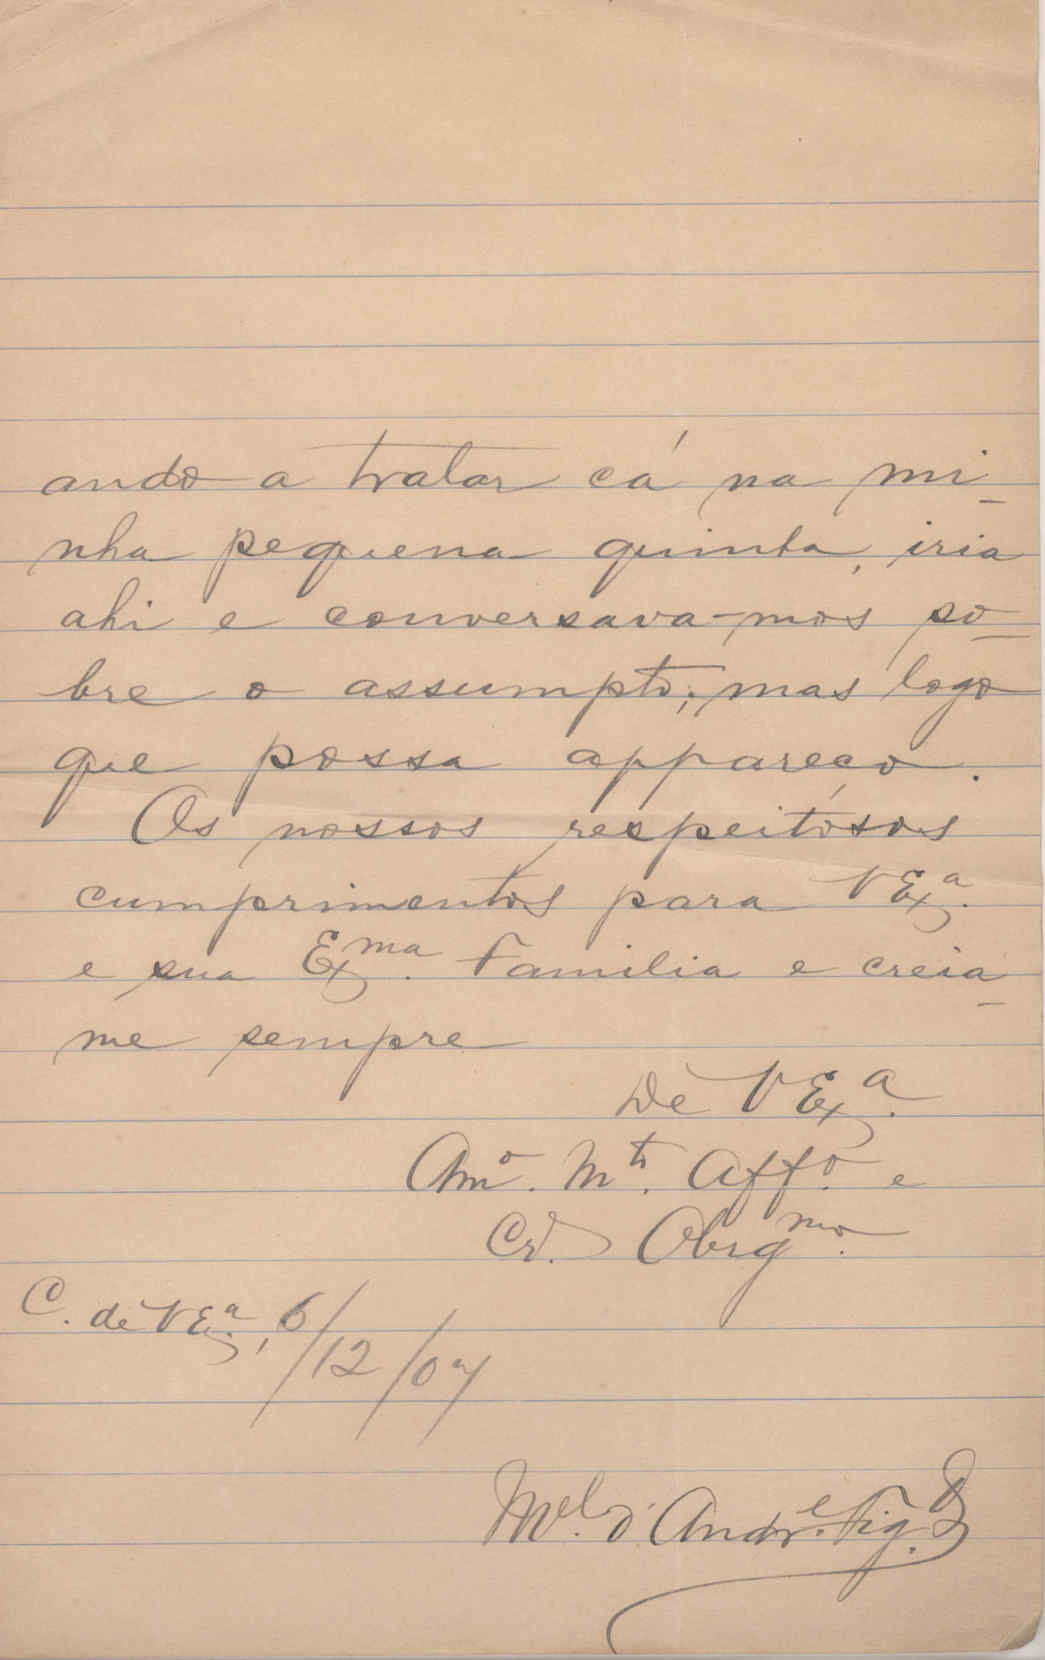 ando a tratar cá na mi-
nha pequena quinta, iria
ahi e conversava-mos so-
bre o assumpto; mas logo
que possa appareço.
Os nossos respeitosos
cumprimentos para V Exª.
e sua Exma. Familia e creia-
me sempre
De V Exª.
Amº. Mto. Affº. e
Cr. Obrigmo.
C. de V Exª., 6/12/07
Mel. d'Andre. Fig.do